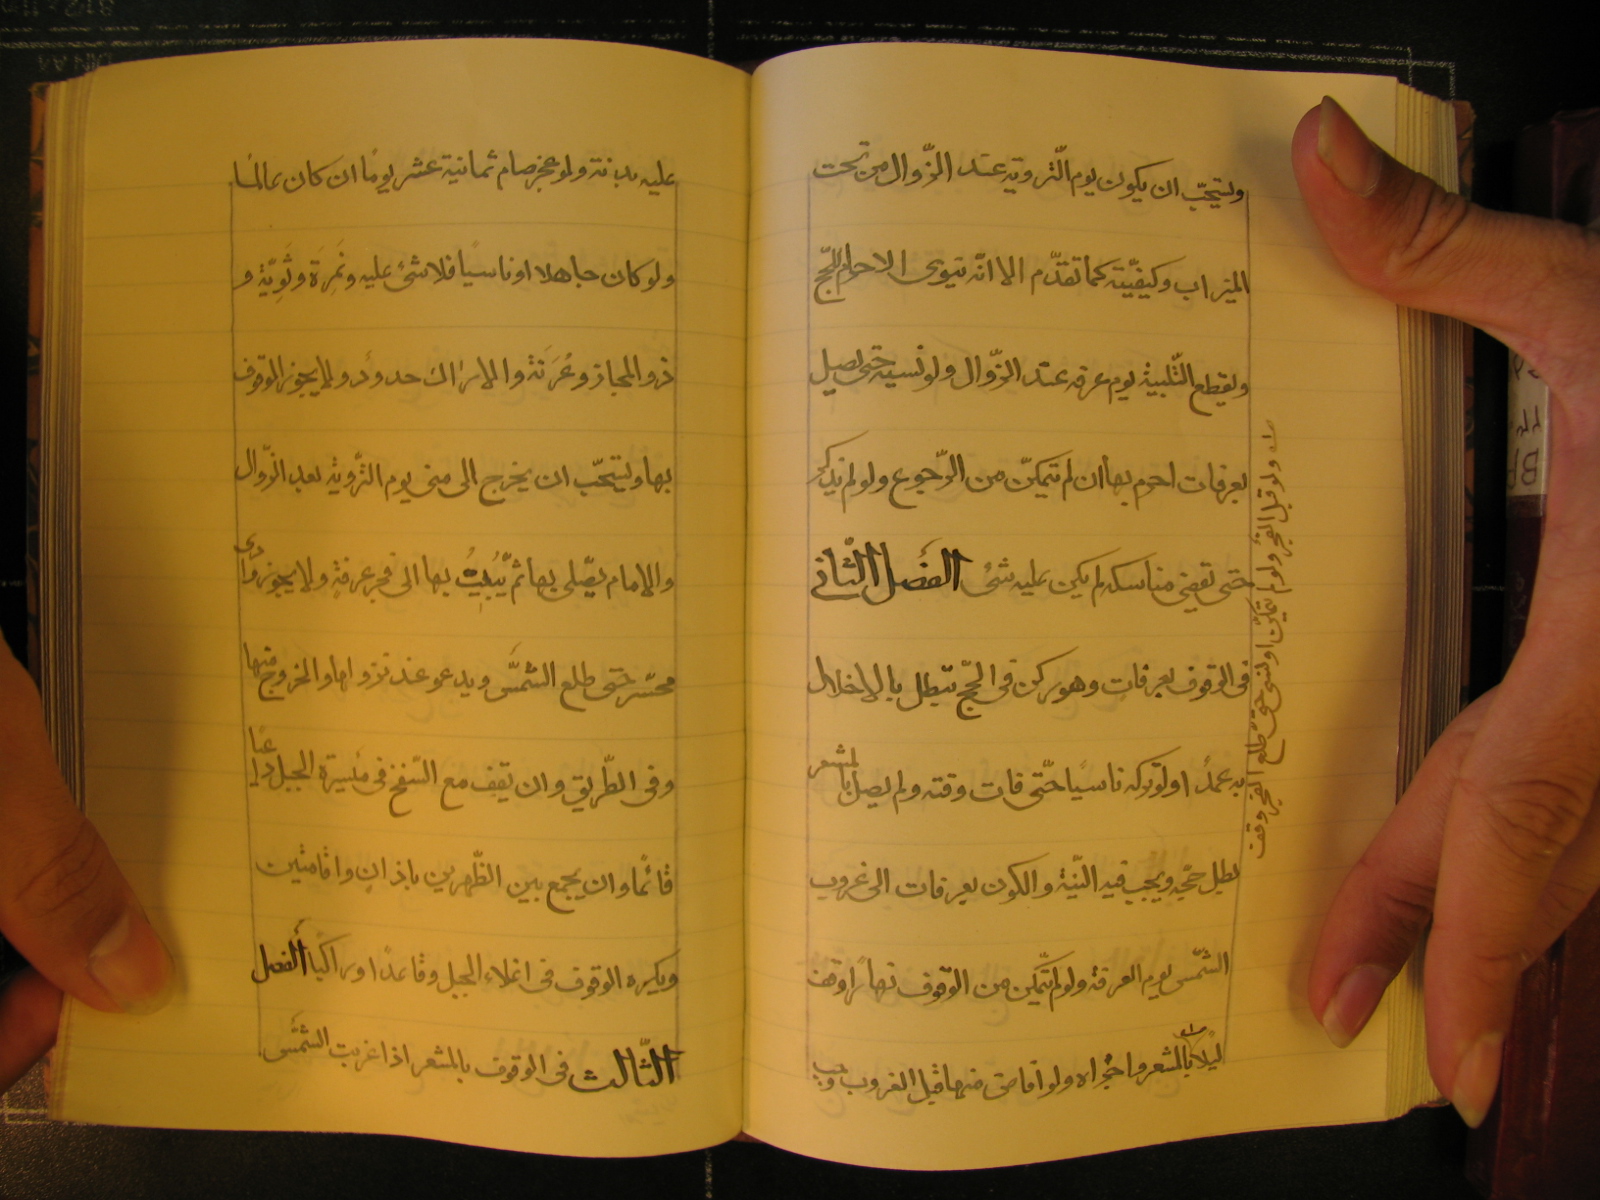 ويستحبّ ان يكون يوم الّتروية عند الزّوال من تحت
الميزاب وكيفيّته كما تقدّم الا انّه ينوى الاحرام للحّج
ويقطع التّلبية يوم عرفه عند الزّوال ولو نسيه حتى يصل
بعرفات احرم بها ان لم يتمكّن من الرّجوع ولو لم يذكر
حتى تقضى مناسكه لم يكن عليه شئ الفصل الثّانى
فى الوقوف بعرفات وهو ركن فى الحّج تبطل بالاخلال
به عمدا ولو تركه ناسيًا حتّى فات وقته ولم يصل بالمشعر
بطل حجّه ويجب فيه النّية والكون بعرفات الى غروب
الشّمس يوم العرفة ولو لم يتمكّن من الوقوف نهارًا وقف
ليلا بالمشعر واجزاه ولو افاض منها قبل الغروب وجب
ولو قبل الفجر ولو لم يتمكن او نسى حتى طلع الفجر وقف
عليه بدنة ولو عجز صام ثمانية عشر يومًا ان كان عالمًا
ولو كان جاهلا او ناسيًا فلا شئ عليه ونَمِرَة وثَوِيّة و
ذو المجاز وعُرَنَة والاراك حدود ولا يجوز الوقوف
بها ويستحّب ان يخرج الى منى يوم التّروية بعد الزّوال
والامام يصّلى بها ثم يَبُيت بها الى فجر عرفة ولا يجوز وادى
محسّر حتى طلع الشمس ويدعو عند نزولها والخروج منها
وفى الطّريق وان يقف مع السّفح فى ميسرة الجبل داعيًا
قائمًا وان يجمع بين الظّهرين باذان واقامتين
ويكره الوقوف فى اعلاء الجبل وقاعدًا وراكبًا الفصل
الثّالث فى الوقوف بالمشعر اذا غربت الشمس